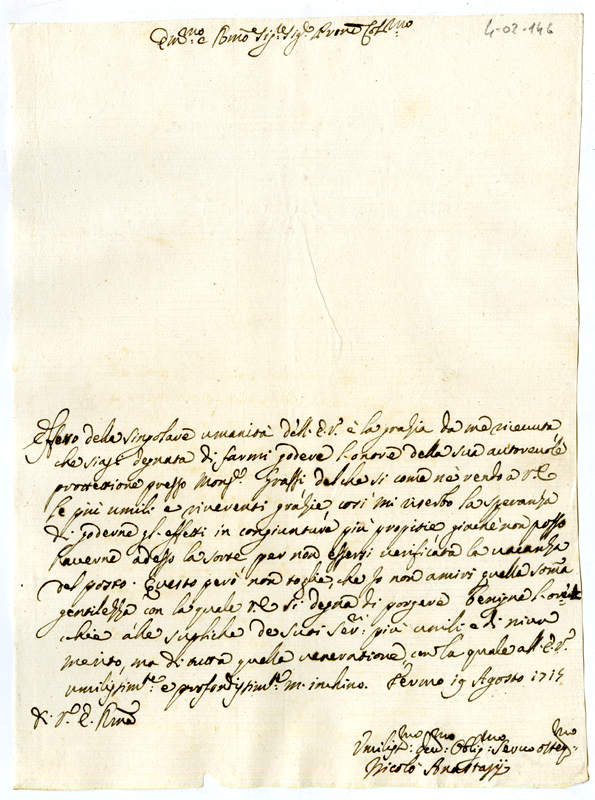 4-02-146
Em.mo e Rmo Sig.re Sig.r Prone Col.mo
Effetto della singolare umanità dell'E.V. è la grazia da me ricevuta
che siasi degnata di farmi godere l'onore della sua autorevole
protezzione presso Mons.r Grassi del che si come ne rendo a V.E.
le più umili e riverenti grazie, così mi riserbo la speranza
di goderne gl'effetti in congiunture più propizie giache non posso
haverne adesso la sorte per non essersi verificata la vacanza
del posto. Questo però non toglie, che Io non amiri quella somma
gentilezza con la quale V.E. si degna di porgere benigne l'orec-
chie alle suppliche de suoi Ser.ri più umili e di niun
merito, ma di tutta quella venerazione, con la quale all'E.V.
umilissim.te e profondissim.te m'inchino. Fermo 19 Agosto 1715
Di V.E. Rma
Umiliss.mo Dev.mo Oblig.mo Servo osseq.mo
Nicolò Anastasij